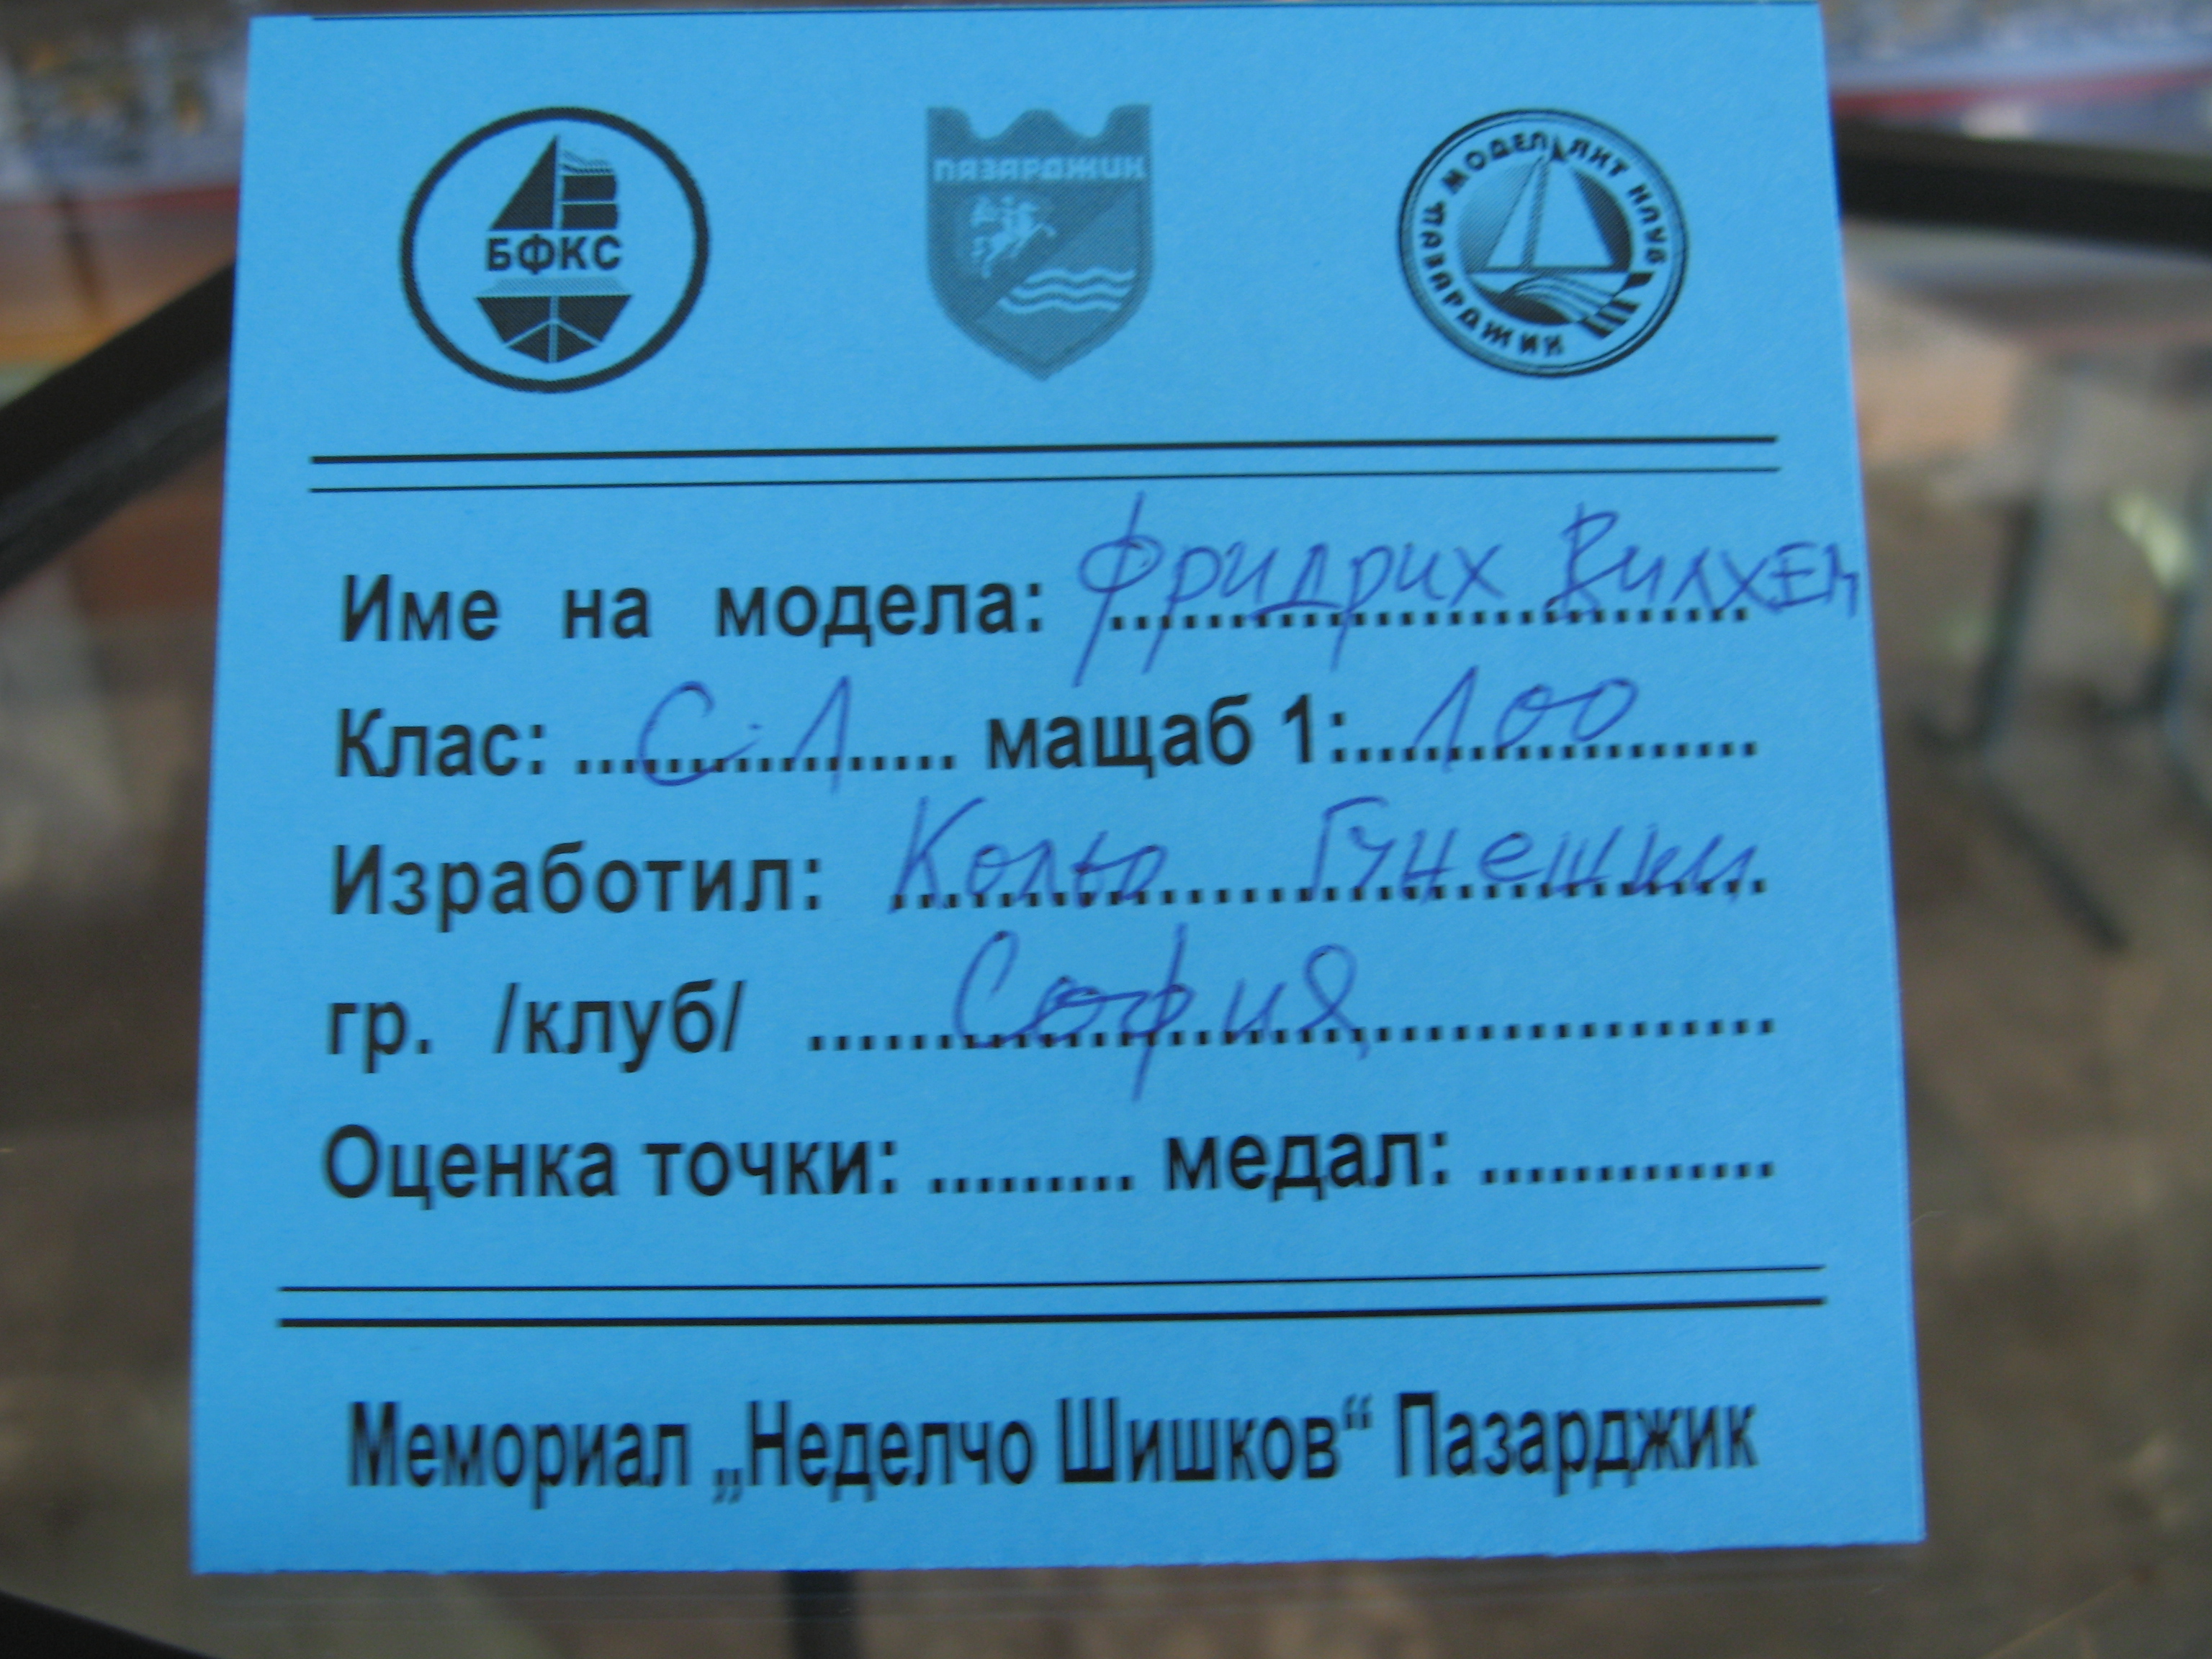 БФКС
ПАЗАРДЖИК
МОДЕЛ ЯХТ КЛУБ ПАЗАРДЖИК
Име на модела: Фридрих Вилхем
Клас: С-1 мащаб 1: 100
Изработил: Кольо Гунешки
гр. /клуб/ София
Оценка точки: ......... медал: .............
Мемориал „Неделчо Шишков“ Пазарджик